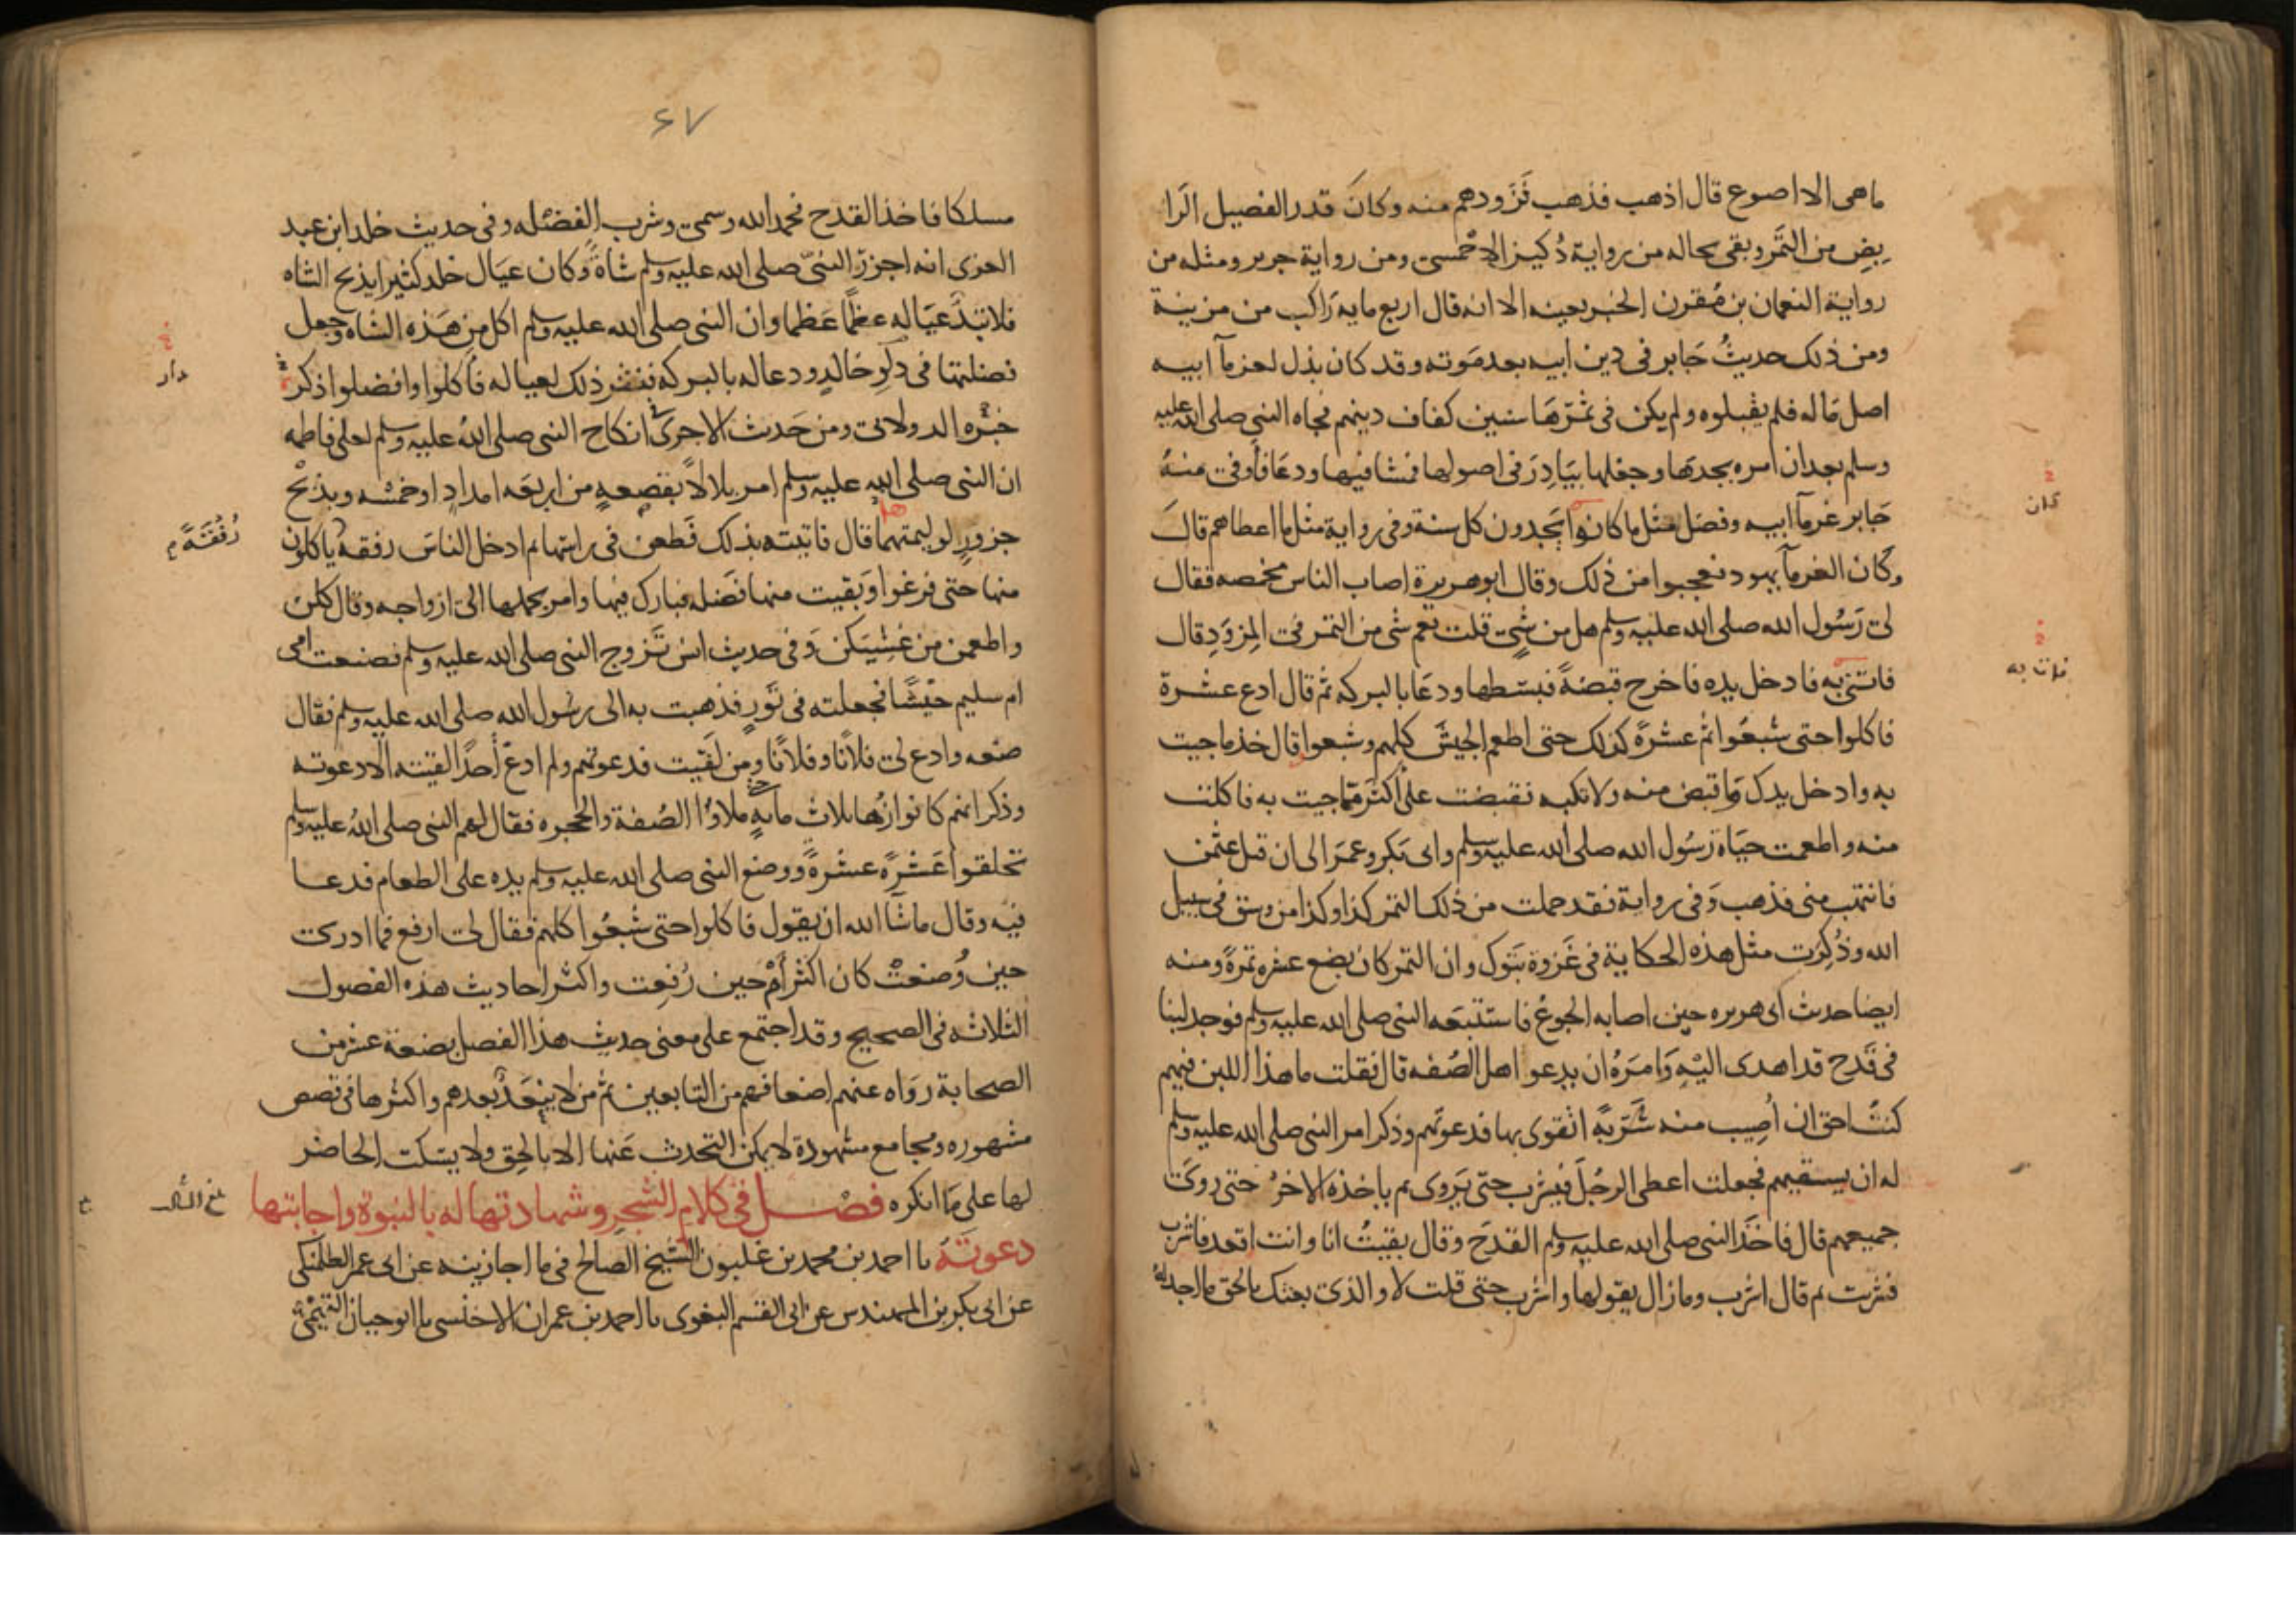 ماهى الا اصوع قال اذهب فذهب فَزَودهم منه وكانَ قدر الفصيل الرا
بِضِ من التَّمر وبقى بحاله من رواية دُكين الاحْمسى ومن رواية جرير ومثله من
رواية النعمان بن مُقرن الخبر بعينه الا انه قال اربع مايه رَاكب من مزينة
ومن ذلك حديثُ جَابر فى دين ابيه بعد مَوته وقد كان بذل لغرمآ ابيه
اصل مَاله فلم يقبلوه ولم يكن فى ثمرّهَا سنين كفاف دينهم فجاه النبى صلى الله عليه
وسلم بعد ان امره بجدهَا وجعلها بيَادِرَ فى اصولها فمشا فيها ودعَا فأوفى منهُ
جَابر غرمآ ابيه وفضل مثل ما كانوا يَجدون كل سنة وفى رواية مثل ما اعطاهم قالَ
وكَان الغرمآ يهود فعجبوا من ذلك وقال ابو هريرة اصاب الناس مخمصه فقال
لى رَسُول الله صلى الله عليه وسلم هل من شىٍ قلت نعم شى من التمر فى المِزوَدِ قال
فاتنى به فادخل يده فاخرج قبضةً فبسَطها ودعَا بالبركه ثم قال ادع عشرة
فاكلوا حتى شبعُوا ثم عشرَةً كذلك حتى اطعم الجيشَ كلهم وشبعوا قال خذ ماجيت
به وادخل يدك وَاقبض منه ولا تكبه فقبضت على أكثَر مّماجيت به فاكلت
منه واطعمت حيَاة رَسُول الله صلى الله عليه وسلم وابى بَكر وعمَر الى ان قتل عثمن
فانتهب منى فذهب وَفى رواية فقد حملت من ذلك التمر كذا وكذا من وسق فى سبيل
الله وذُكِرَت مثل هذه الحكاية فى غَزوة تَبُوك وان التمر كان بضع عشره تمرةً ومنه
ايضا حديث ابى هريره حين اصابه الجوعُ فاستتبعَه النبى صلى الله عليه وسلم فوجد لبنا
فى قَدح قد اهدى اليْهِ وَامَرَهُ ان يدعو اهل الصُفه قال فقلت ما هذا اللبن فيهم
كنتُ احق ان اُصِيب منه شَرَبةً اتقوى بها فدعوتَهم وذكر امر النبى صلى الله عليه وسلم
له ان يسقيهم فجعلت اعطى الرجُلَ فيشرب حتىّ يَروى ثم ياخذه الاخرُ حتى روىَ
جميعهم قال فاخَذَ النبى صلى الله عليه وسلم القدحَ وقال بقيتُ انا وانت اقعد فاشرب
فشربت ثم قال اشرب ومازال يقولها واشرب حتى قلت لا والذى بعثك بالحق ما اجد له
كان
فات به
٤٧
مسلكا فاخذ القدح فحمد الله وسمى وشرب الفضله وفى حديث خلد ابن عبد
العزى انه اجزرَ النبىّ صلى الله عليه وسلم شاةً وكان عيَال خلد كثيرا يذبح الشاه
فلا تبدُّ عيَاله عظمًا عَظما وان النبى صلى الله عليه وسلم اكل مِن هَذه الشاه وجعل
فضلتها فى دلوِ خالدٍ ودعا له بالبركه فنثر ذلك لعياله فأكلوا وافضلوا ذكر
خبَره الدولابى ومن حَديث الاجرى فى انكاح النبى صلى اللهُ عليه وسلم لعلى فاطمه
ان النبى صلى الله عليه وسلم امر بلالاً بقصعهٍ من اربعَه امدادٍ اوخمسَه وبذبْح
جزورٍ لوليمتهما قال فاتيته بذلك فَطعن فى راسها ثم ادخل الناسَ رفقه ياكلون
منها حتى فرغوا وَبقيت منها فَضله فبارك فيها وامر بحملها الى ازواجه وقال كلن
واطعمن من غشيَكن وَفى حديث انس تَزوج النبى صلى الله عليه وسلم فصنعت امى
ام سليم حَيْسًا فجعلته فى تَورٍ فذهبت به الى رسُول الله صلى الله عليه وسلم فقال
ضعه وادع لى فلانًا وفلانًا ومن لَقيت فدعوتهم ولم ادعَ أحدًا لقيته الا دعوته
وذكر انهم كانوا زُها ثلاث مايهٍ حتى ملاؤا الصُفة والحجره فقال لهم النبى صلى اللهُ عليه وسلم
تحلقوا عَشرةً عشرةً ووضع النبى صلى الله عليه وسلم يده على الطعام فدعا
فيه وقال ماشآ الله ان يقول فاكلوا حتى شبعُوا كلهم فقال لى ارفع فما ادرى
حين وُضعتْ كان اكثر أمْ حين رُفعِت واكثر احاديث هذه الفصول
الثلاثه فى الصحيح وقد اجتمع على معنى حديث هذا الفصل بضعة عشر من
الصحابة رَوَاه عنهم اضعافهم من التابعين ثم من لا ينعَدُّ بعدهم واكثرها فى قصص
مشهوره ومجامع مشهودة لا يمكن التحدث عَنها الا بالحق ولا يسكت الحاضر
لها على مَا انكره فصْل فى كلام الشجر وشهادتها له بالنبوة واجابتها
دعوتَهُ نا احمد بن محمد بن غلبون الشيخ الصالح فى ما اجازنيه عن ابى عمر الطلمنكى
عن ابى بكر بن المهندس عن ابى القسم البغوى نا احمد بن عمران الاخنسى نا ابو حيان التيمْىّ
دار
رُفْقَةً